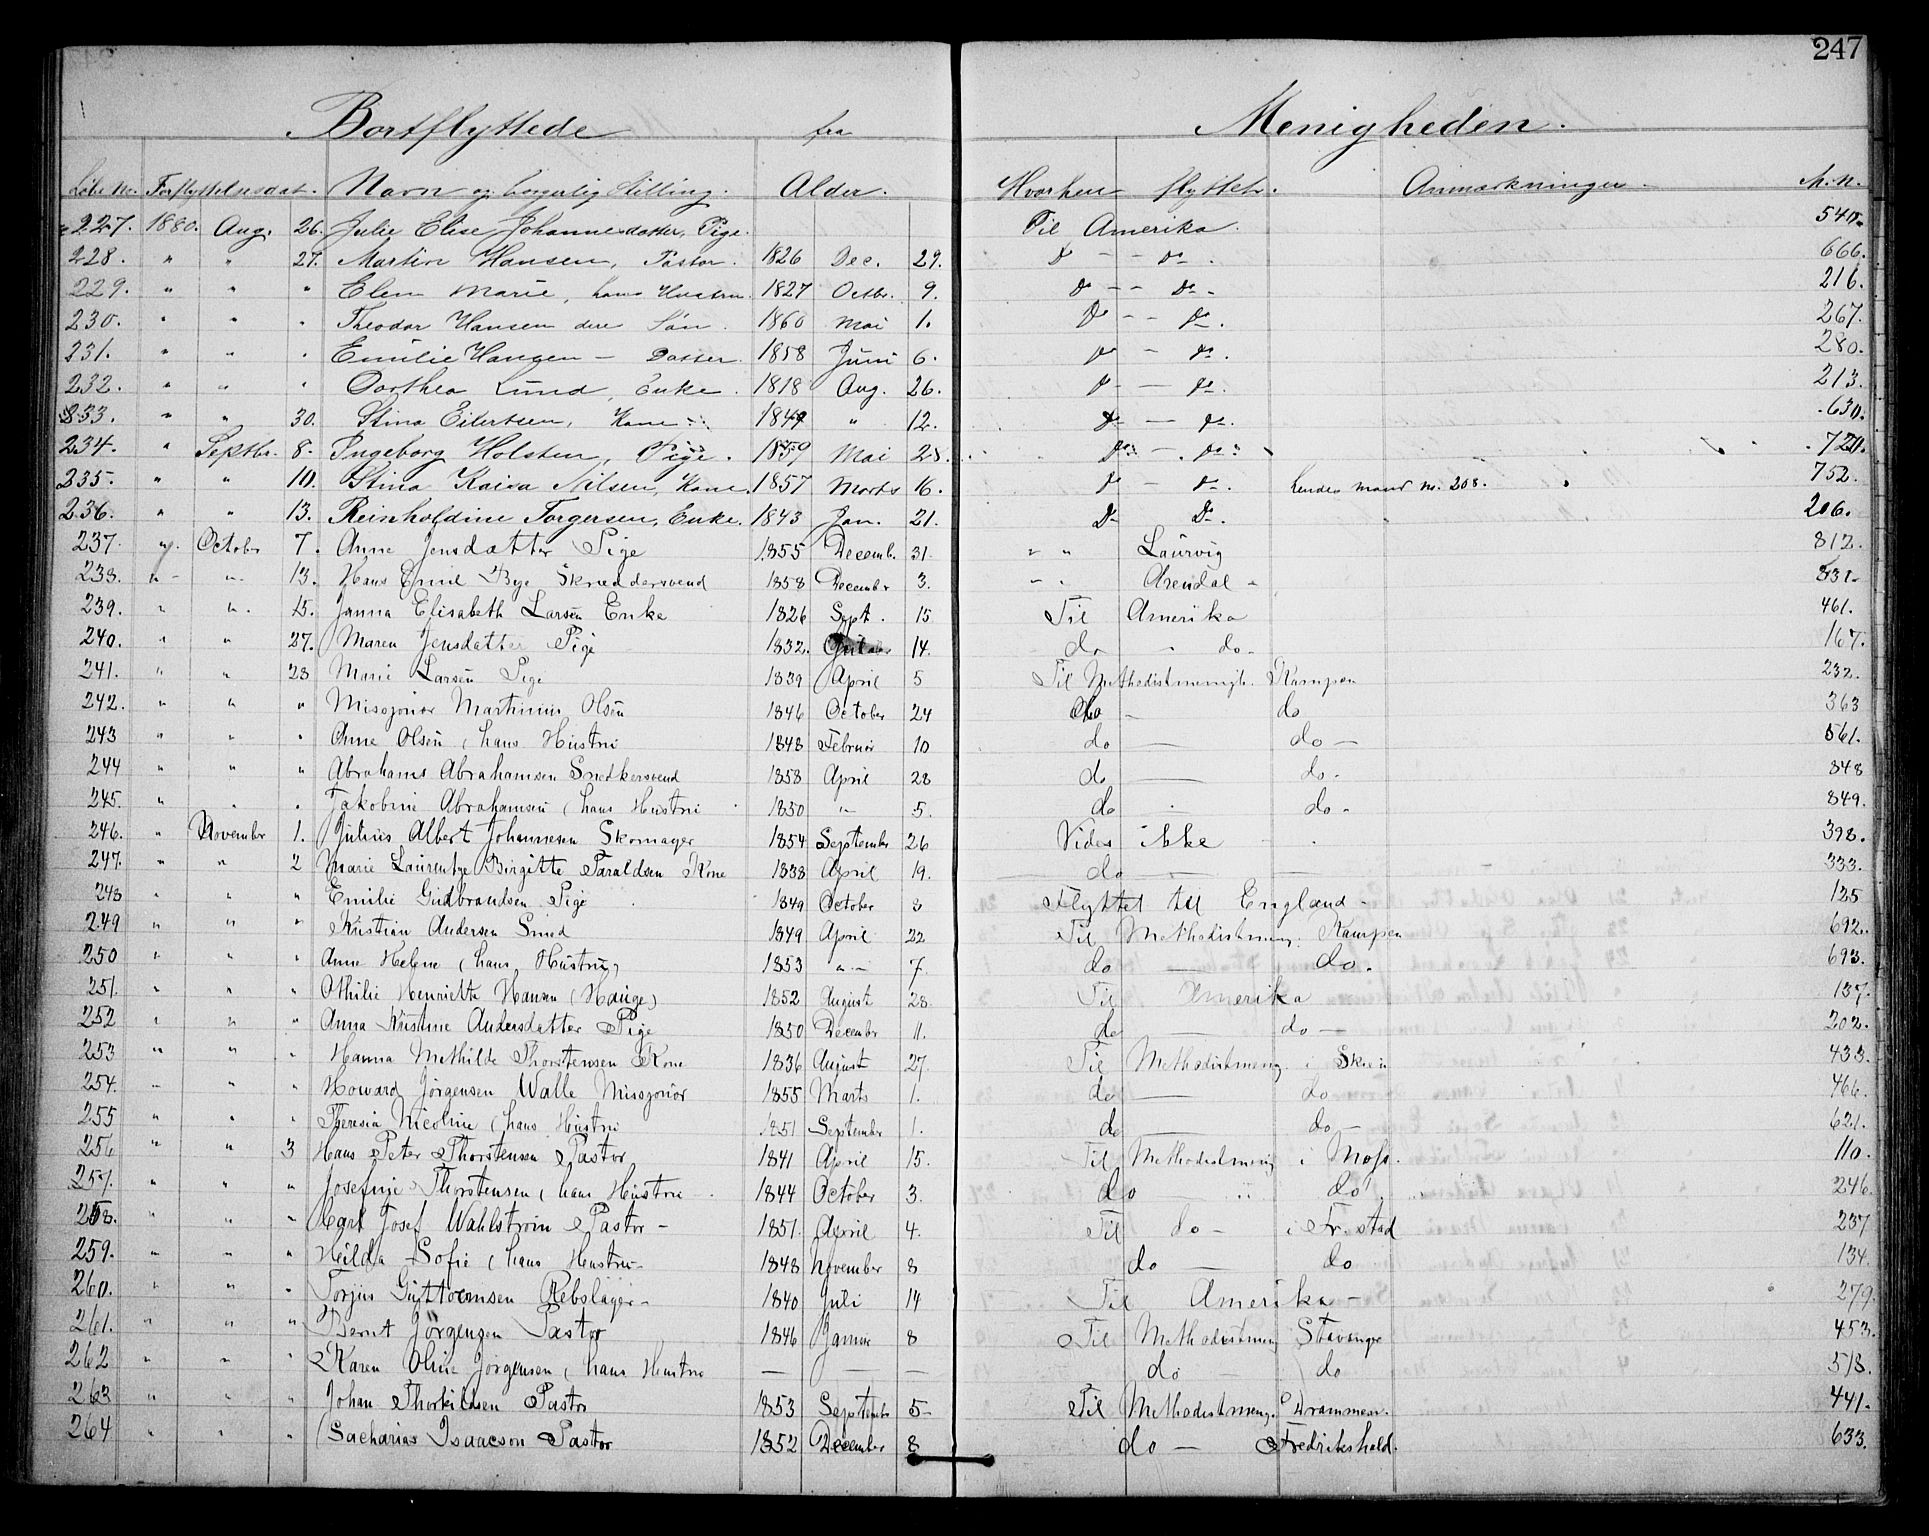 247
Bortflyttede fra Menigheden.
Löbe No. Forflyttelsesdat. Navn og borgerlig Stilling. Alder. Hvorhen flyttet. Anmærkninger. M.N.
227. 1880. Aug. 26. Julie Elise Johannesdatter, Pige. Til Amerika. 540.
228. " " 27. Martin Hansen, Pastor. 1826 Dec. 29. Do - - do. 666.
229. " " " Elen Marie, hans Hustru. 1827 Octbr. 9. Do - - Do - 216.
230. " " " Theodor Hansen den Sön. 1860 Mai 1. Do - - Do. 267.
231. " " " Emilie Hansen - Datter. 1858 Juni 6. Do - Do. 280.
232. " " " Dorthea Lund, Enke. 1818 Aug. 26. Do - - Do. 213.
233. " " 30. Stina Eilertsen, Kone. 1849 " 12. Do - Do. 630.
234. " Septbr. 8. Ingeborg Holsten, Pige. 1859 Mai 28. Do - Do. 720.
235. " " 10. Stina Kaisa Nilsen, Kone. 1857 Marts 16. Do - Do. hendes mand no. 208. 752.
236. " " 13. Reinholdine Torgersen, Enke. 1843 Jan. 21. Do Do. 206.
237. " October 7. Anne Jensdatter Pige 1855 Decemb. 31. " " Laurvig 812.
238. " " 13. Hans Emil Bye Skræddersvend 1858 December 3. " " Arendal - 831.
239. " " 15. Janna Elisabeth Larsen Enke 1826 Sept. 15 Til Amerika 461.
240. " " 27. Maren Jensdatter Pige 1832. 14. do " do - 167.
241. " " 28 Marie Larsen Pige 1839 April 5 Til Methodistmenigh. Kampen 232.
242. " " " Missjonær Martinius Olsen 1846 October 24 do - do 363
243 " " " Anne Olsen (hans Hustru 1848 Februar 10 do — do — 561.
244 " " " Abrahams Abrahamsen Snedkersvend 1858 April 28 do — do - 848
245. " " " Jakobine Abrahamsen (hans Hustru 1850 " 5. do - do - 849.
246. " November 1. Julius Albert Johannesen Skomager 1854 September 26 Vides ikke 398.
247. " " 2 Marie Laurentze Birgitte Taraldsen Kone 1838 April 19. do — 333.
248 " " " Emilie Gudbrandsen Pige 1849 October 8 Flyttet til England - 125
249 " " " Kristian Andersen Smed 1849 April 22 Til Methodistmen. Kampen 692.
250 " " " Anne Helene (hans Hustru) 1853 " - 7. do — do. 693.
251. " " " Othilie Henriette Hansen (Hauge) 1852 August 28. Til Amerika 137.
252 " " " Anna Kristine Andersdatter Pige 1850 Decembr 11. do — do — 202.
253 " " " Hanna Mathilde Thorstensen Kone 1836 August 27. Til Methodistmeng. i Skien 433.
254. " " " Howard Jörgensen Walle Missjonör 1855 Marts 1. do — do 466.
255 " " " Theresia Nicoline (hans Hustru 1851 September 1. do — do - 621.
256 " " 3 Hans Peter Thorstensen Pastor 1841 April 15. Til Methodistmenig i Moss. 110.
257. " " " Josefine Thorstensen (hans Hustru 1844 October 3. do " do 246.
258. " " " Carl Josef Wahlström Pastor - 1851. April 4. Til do - i Fr.stad 237
259. " " " Hilda Sofie (hans Hustru - 1848 November 8 do — do 134.
260. " " " Torjus Guttormsen Rebslager - 1840 Juli 14 Til Amerika - 279.
261. " " " Bernt Jörgensen Pastor 1846 Januar 8 Til Methodistmen Stavanger 453.
262 " " " Karen Oline Jörgensen (hans Hustru — — — do — do 518.
263 " " " Johan Thorkildsen Pastor 1853 September 5 - Til Methodistmeng. Drammen. 441.
264 " " " Sacharias Isaacson Pastor 1852 December 8 do — Fredrikshald. 633.